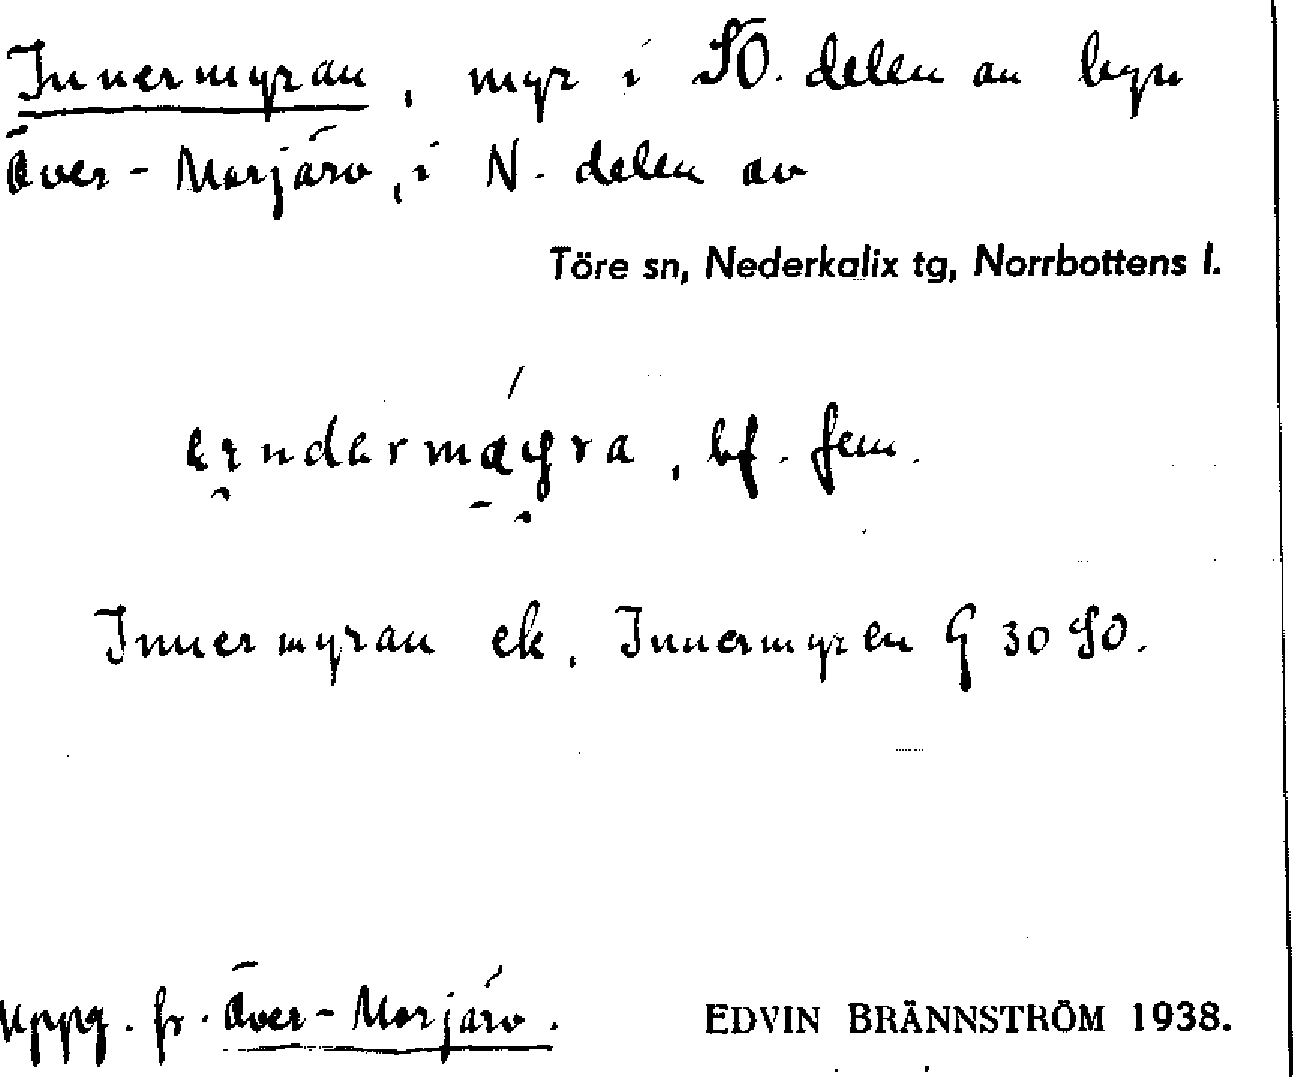 Innermyran, myr i SÖ. delen av byn
Över-Morjärv, i N. delen av
Töre sn, Nederkalix tg, Norrbottens l.
bf. fem.
Innermyran ek, Innermyren G 30 SO.
Uppg. fr. Över-Morjärv.
EDVIN BRÄNNSTRÖM 1938.